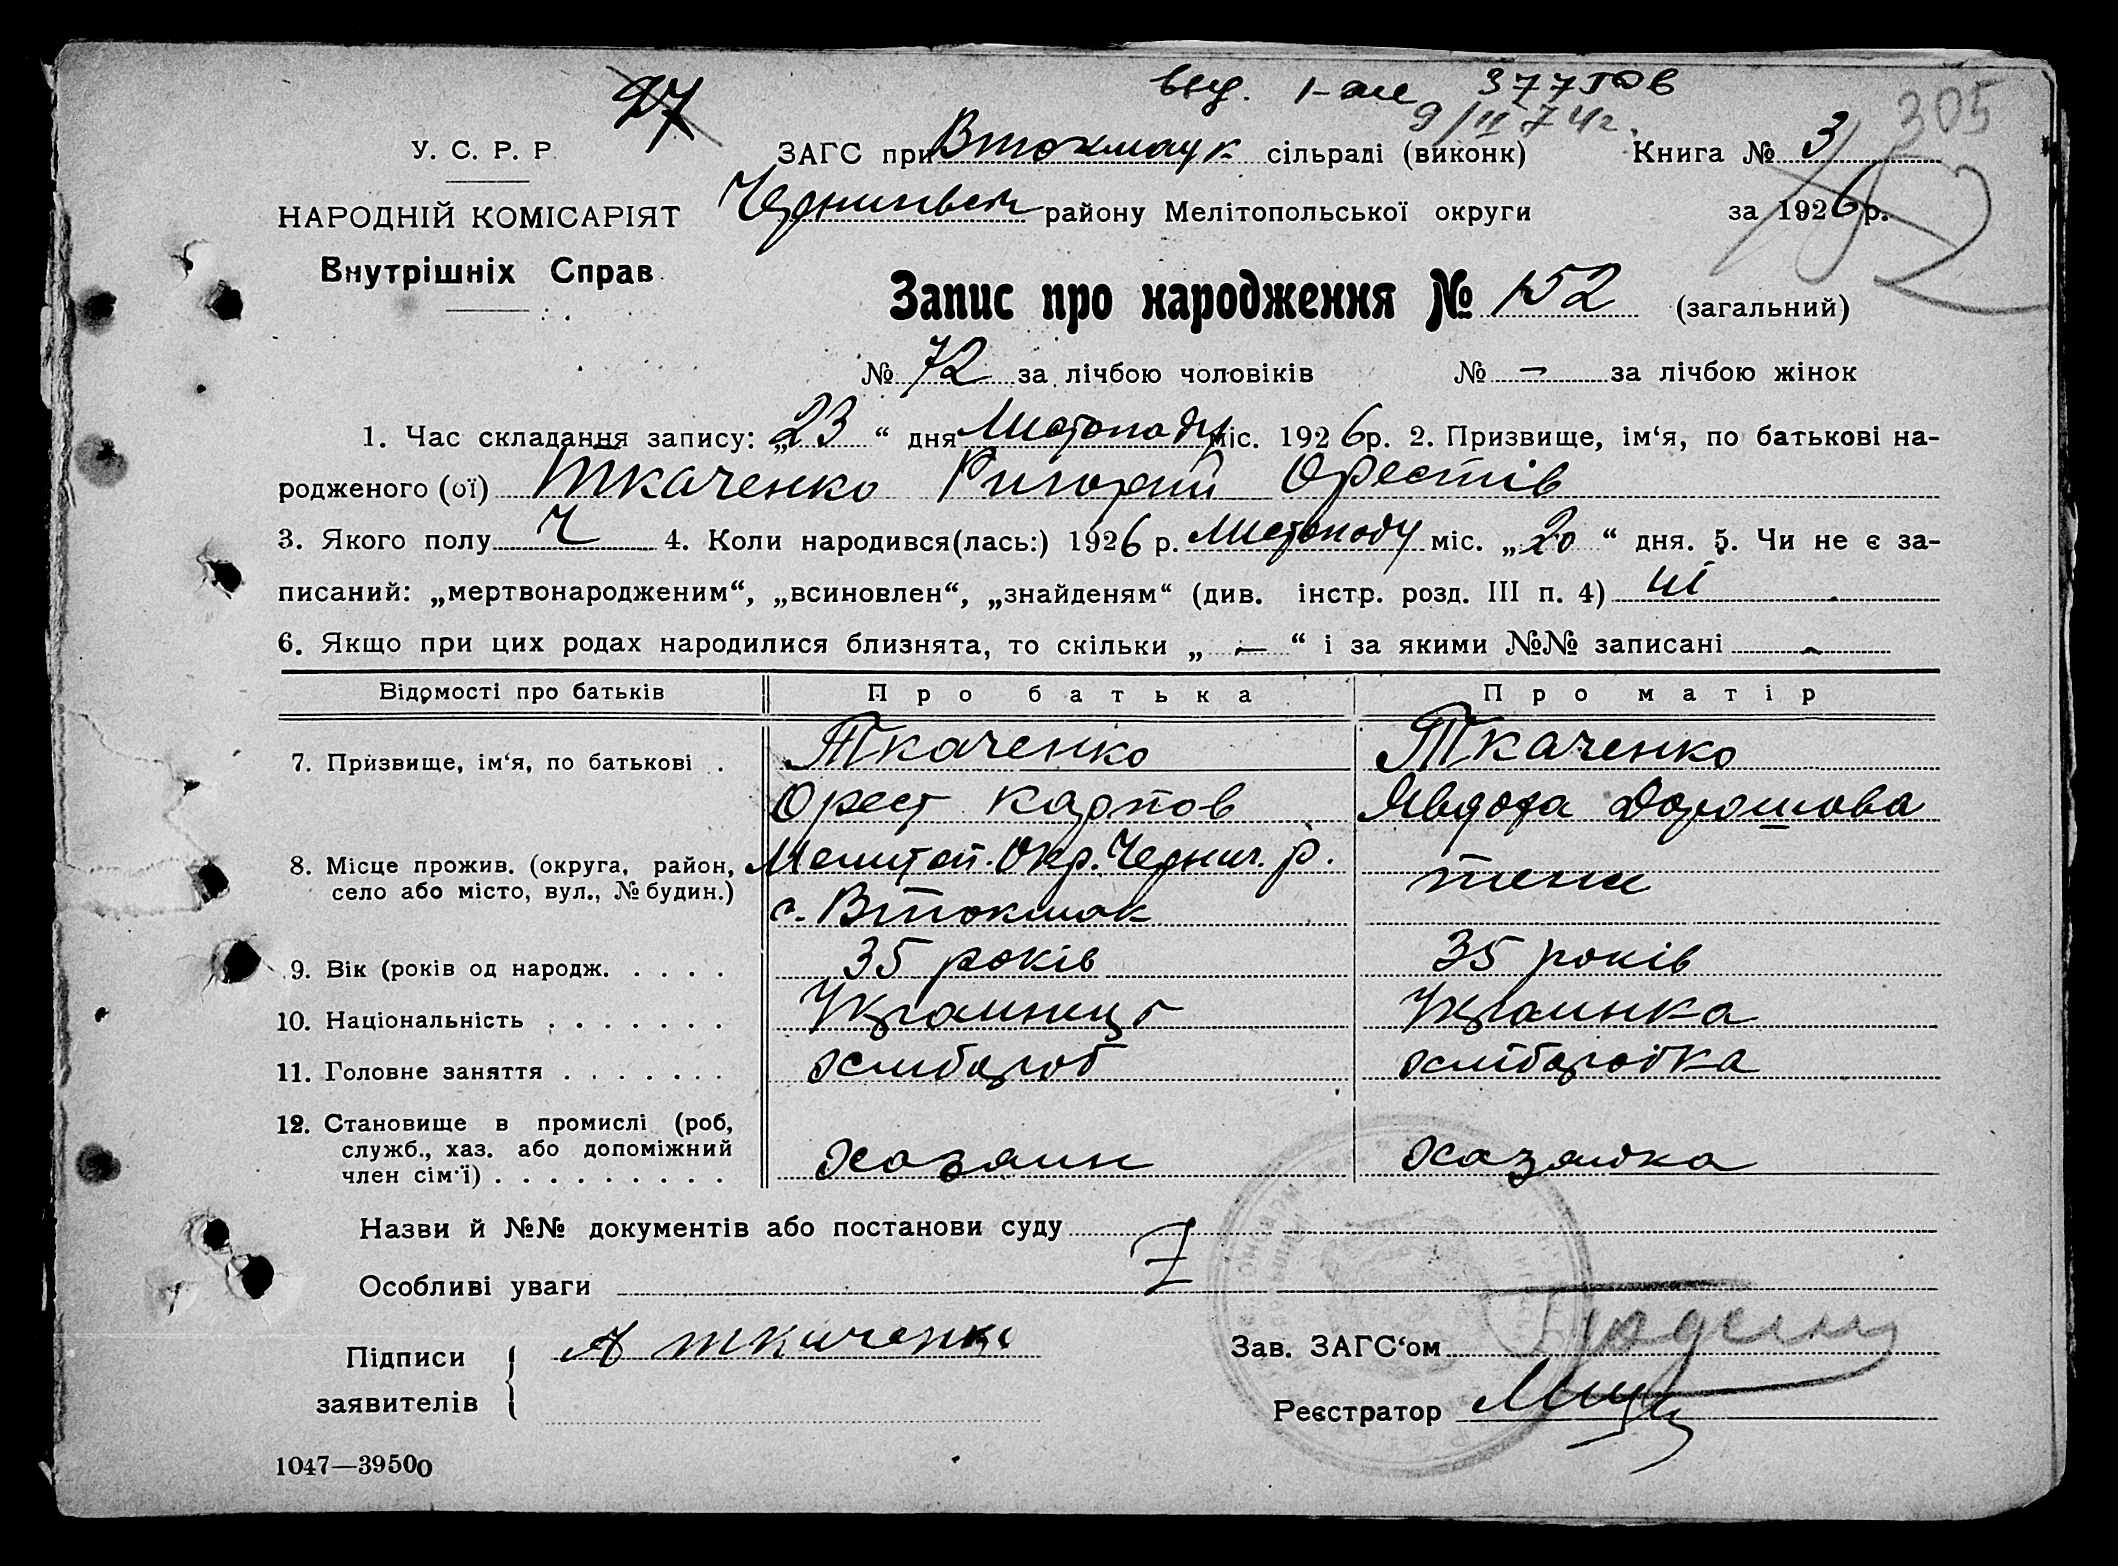 27
305
вид. 377
9/II 74 г.
У. С. Р. Р.
ЗАГС при Втокмацк сільраді (виконк) Книга № 3
НАРОДНІЙ КОМІСАРІЯТ
Внутрішніх Справ
району Мелітопольської округи за 1926 р.
Запис про народження № 152 (загальний)
№ 72 за лічбою чоловіків № — за лічбою жінок
1. Час складання запису: „23“ дня Листопаду міс. 1926 р. 2. Призвище, ім‘я, по батькові на-
родженого (ої) Ткаченко Григорий Орестів
3. Якого полу Ч 4. Коли народився(лась:) 1926 р. листопаду міс. „20“ дня. 5. Чи не є за-
писаний: „мертвонародженим“, „всиновлен“, „знайденям“ (див. інстр. розд. III п. 4) ні
6. Якщо при цих родах народилися близнята, то скільки „—“ і за якими №№ записані —
Відомості про батьків Про батька Про матір
7. Призвище, ім‘я, по батькові . Ткаченко Ткаченко
Орест Карпов Явдоха Дорошова
8. Місце прожив. (округа, район, Мелитоп. Окр. Черниг. р.
село або місто, вул., № будин.) с. Втокмак
9. Вік (років од народж. . . . . 35 років 35 років
10. Національність . . . . . . . Украинець Украинка
11. Головне заняття . . . . . . . хлибороб хлиборобка
12. Становище в промислі (роб,
служб., хаз. або допоміжний
член сім‘ї) . . . . . . . . . хозяин хазяйка
Назви й №№ документів або постанови суду
Особливі уваги
Підписи Ткаченко Зав. ЗАГС‘ом
заявителів Реєстратор
1047—39500